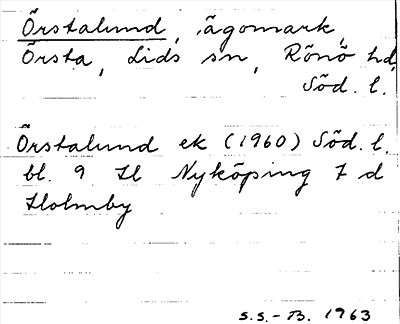 Örstalund, ägomark,
Örsta, Lids sn, Rönö hd,
Söd. l.
Örstalund ek (1960) Söd. l.
bl. 9 H Nyköping 7 d
Holmby
S.S.-B. 1963